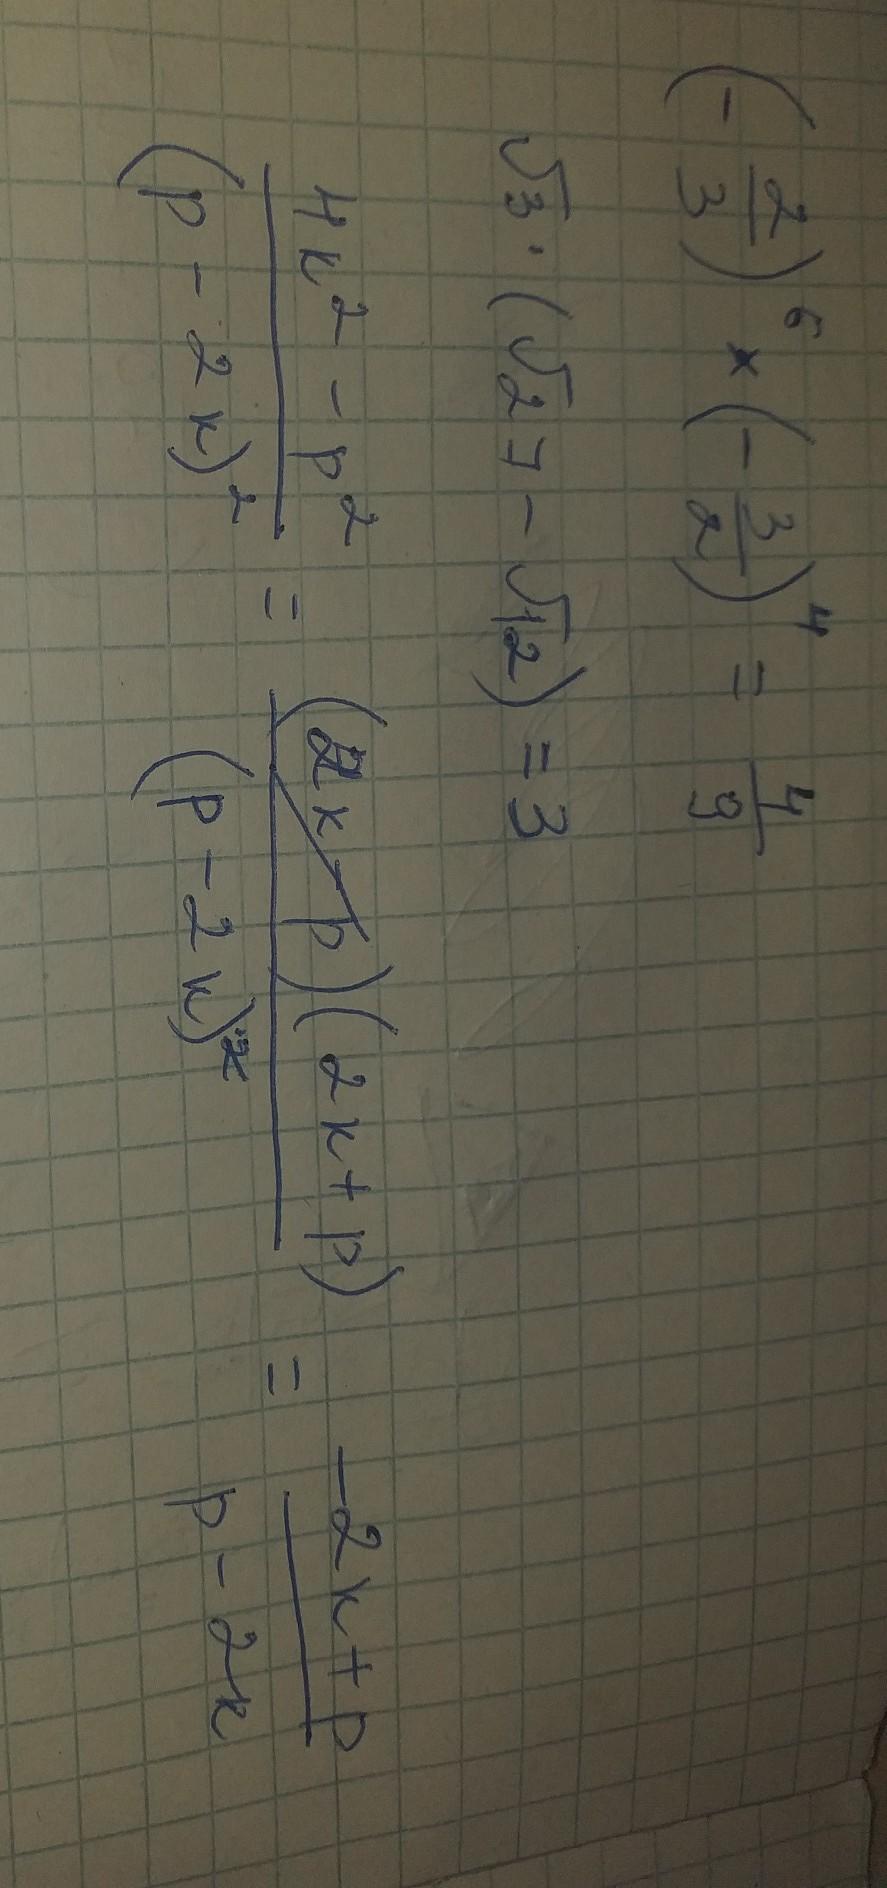 (-2/3)^6 × (-3/2)^4 = 4/9
√3 · (√27 - √12) = 3
(4k² - p²)/(p - 2k)² = ((2k - p)(2k + p))/(p - 2k)² = (-2k + p)/(p - 2k)